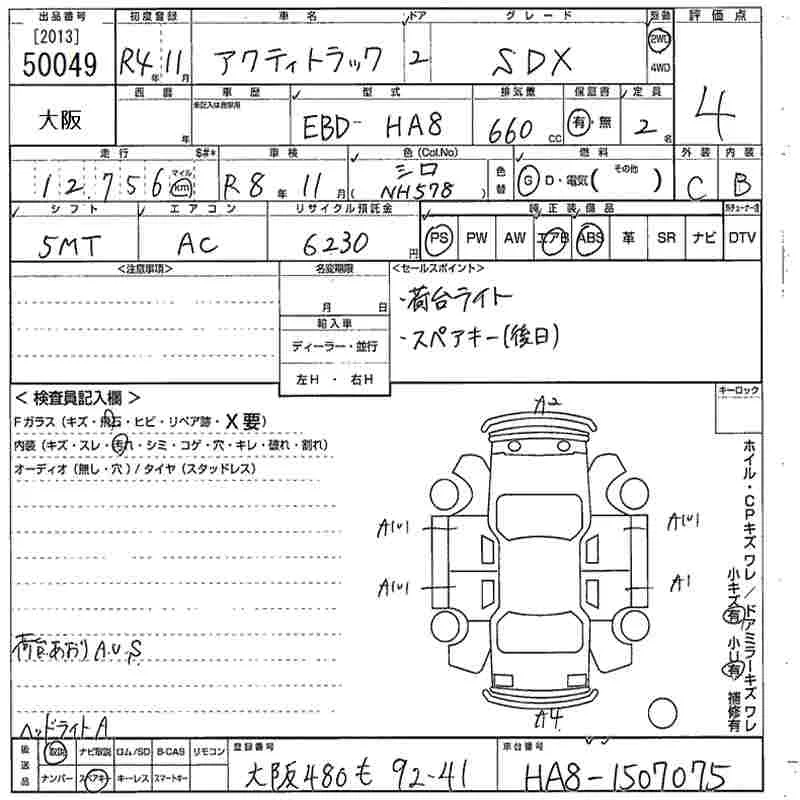 出品番号 初度登録 車名 ドア グレード 駆動 評価点
[2013] 50049 R4年 11月 アクティトラック 2 SDX 2WD 4WD 4
大阪 西暦 年 車歴 未記入は自家用 型式 EBD- HA8 排気量 660 cc 保証書 有・無 定員 2名
走行 $#* 12,756 マイル km 車検 R8年 11月 色(Col.No) シロ (NH578) 色替 燃料 G D・電気( その他 ) 外装 C 内装 B
シフト 5MT エアコン AC リサイクル預託金 6230円 純正装備品 PS PW AW エアB ABS 革 SR ナビ DTV
<注意事項> 名変期限 <セールスポイント>
月 日 ・荷台ライト
輸入車 ・スペアキー(後日)
ディーラー・並行
左H ・ 右H
< 検査員記入欄 > キーロック
Fガラス(キズ・飛石・ヒビ・リペア跡・X要)
内装(キズ・スレ・汚れ・シミ・コゲ・穴・キレ・破れ・割れ)
オーディオ(無し・穴)/タイヤ(スタッドレス)
A2
A1U1 A1U1
A1U1 A1
A4
ホイル・CPキズ ワレ / ドアミラーキズ ワレ
小キズ有 小U有 補修有
荷台あおり A.U.S
ヘッドライトA
後送品 取説 ナビ取説 ロム/SD B-CAS リモコン 登録番号 車台番号
ナンバー スペアキー キーレス スマートキー 大阪480も 92-41 HA8-1507075